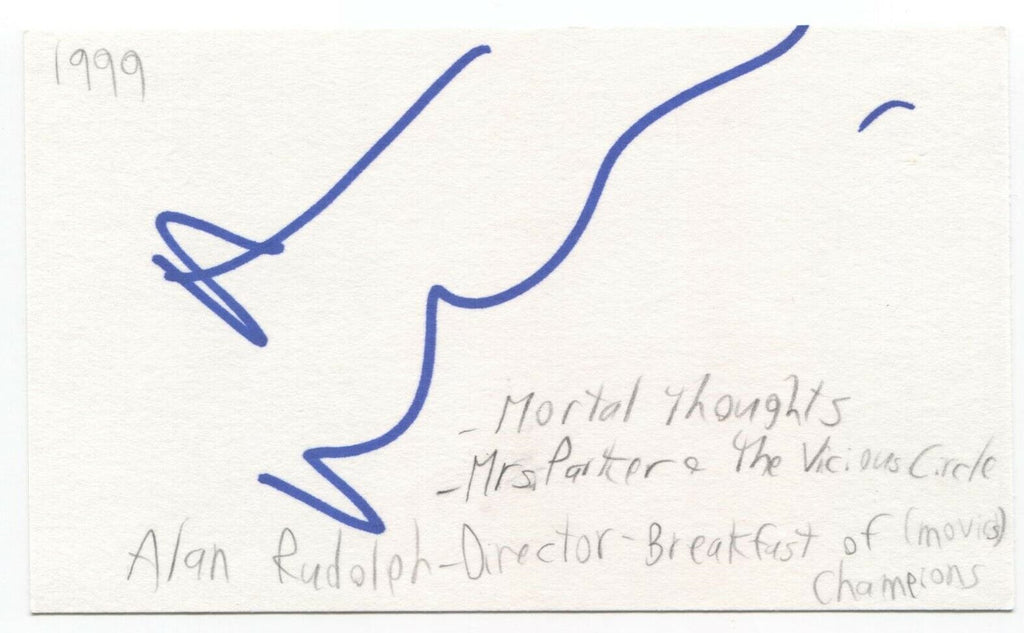 1999
- Mortal Thoughts
- Mrs. Parker & The Vicious Circle
Alan Rudolph - Director - Breakfast of (movies)
Champions